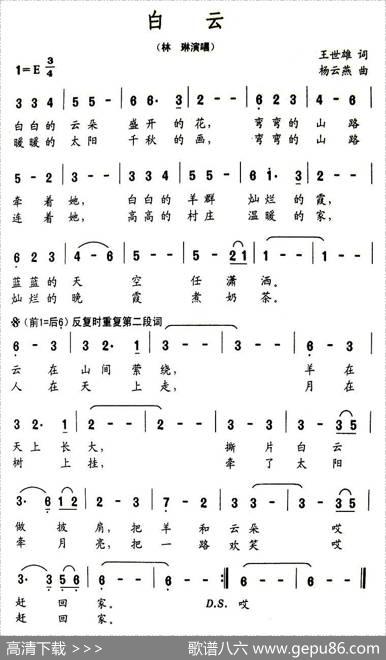 白 云
（林 琳演唱）
王世雄 词
1=E 3/4
杨云燕 曲
3 3 4 | 5 5 - | 6 6· 3 | 2 - - | 6 2 3 | 4 - 6 |
白白的 云朵 盛开的 花， 弯弯的 山路
暖暖的 太阳 千秋的 画， 弯弯的 山路
5 - 2 | 3 - - | 3 3 4 | 5 - 5 | 6 1· 3 | 2 - - |
牵着 她， 白白的 羊群 灿烂的 霞，
连着 她， 高高的 村庄 温暖的 家，
6 2 3 | 4 - 6 | 5 - - | 5 - 2 1 | 1 - - | 1 - - |
蓝蓝的 天 空 任潇 洒。
灿烂的 晚 霞 煮奶 茶。
（前1=后6）反复时重复第二段词
6 - 3 | 3 2· 1 | 3 - - | 3 - - | 6 - 3 |
云 在 山间 萦 绕， 羊 在
人 在 天上 走， 月 在
3 2· 1 | 2 - - | 2 - - | 3 - 3 | 3 5 3 |
天上 长 大， 撕 片 白云
树 上 挂， 牵 了 太阳
3· 6 1 2 | 2 - 3 | 7 - 7 | 2 2 3 | 3 - 3 |
做 披 肩，把 羊 和 云朵 哎
牵 月 亮，把 一 路 欢笑 哎
3· 3 5 6 | 6 - - | 6 - - :| 6 - 6 | 6 - - |
赶 回 家。 D.S. 哎
赶 回 家。
高清下载 >>>
歌谱八六 www.gepu86.com